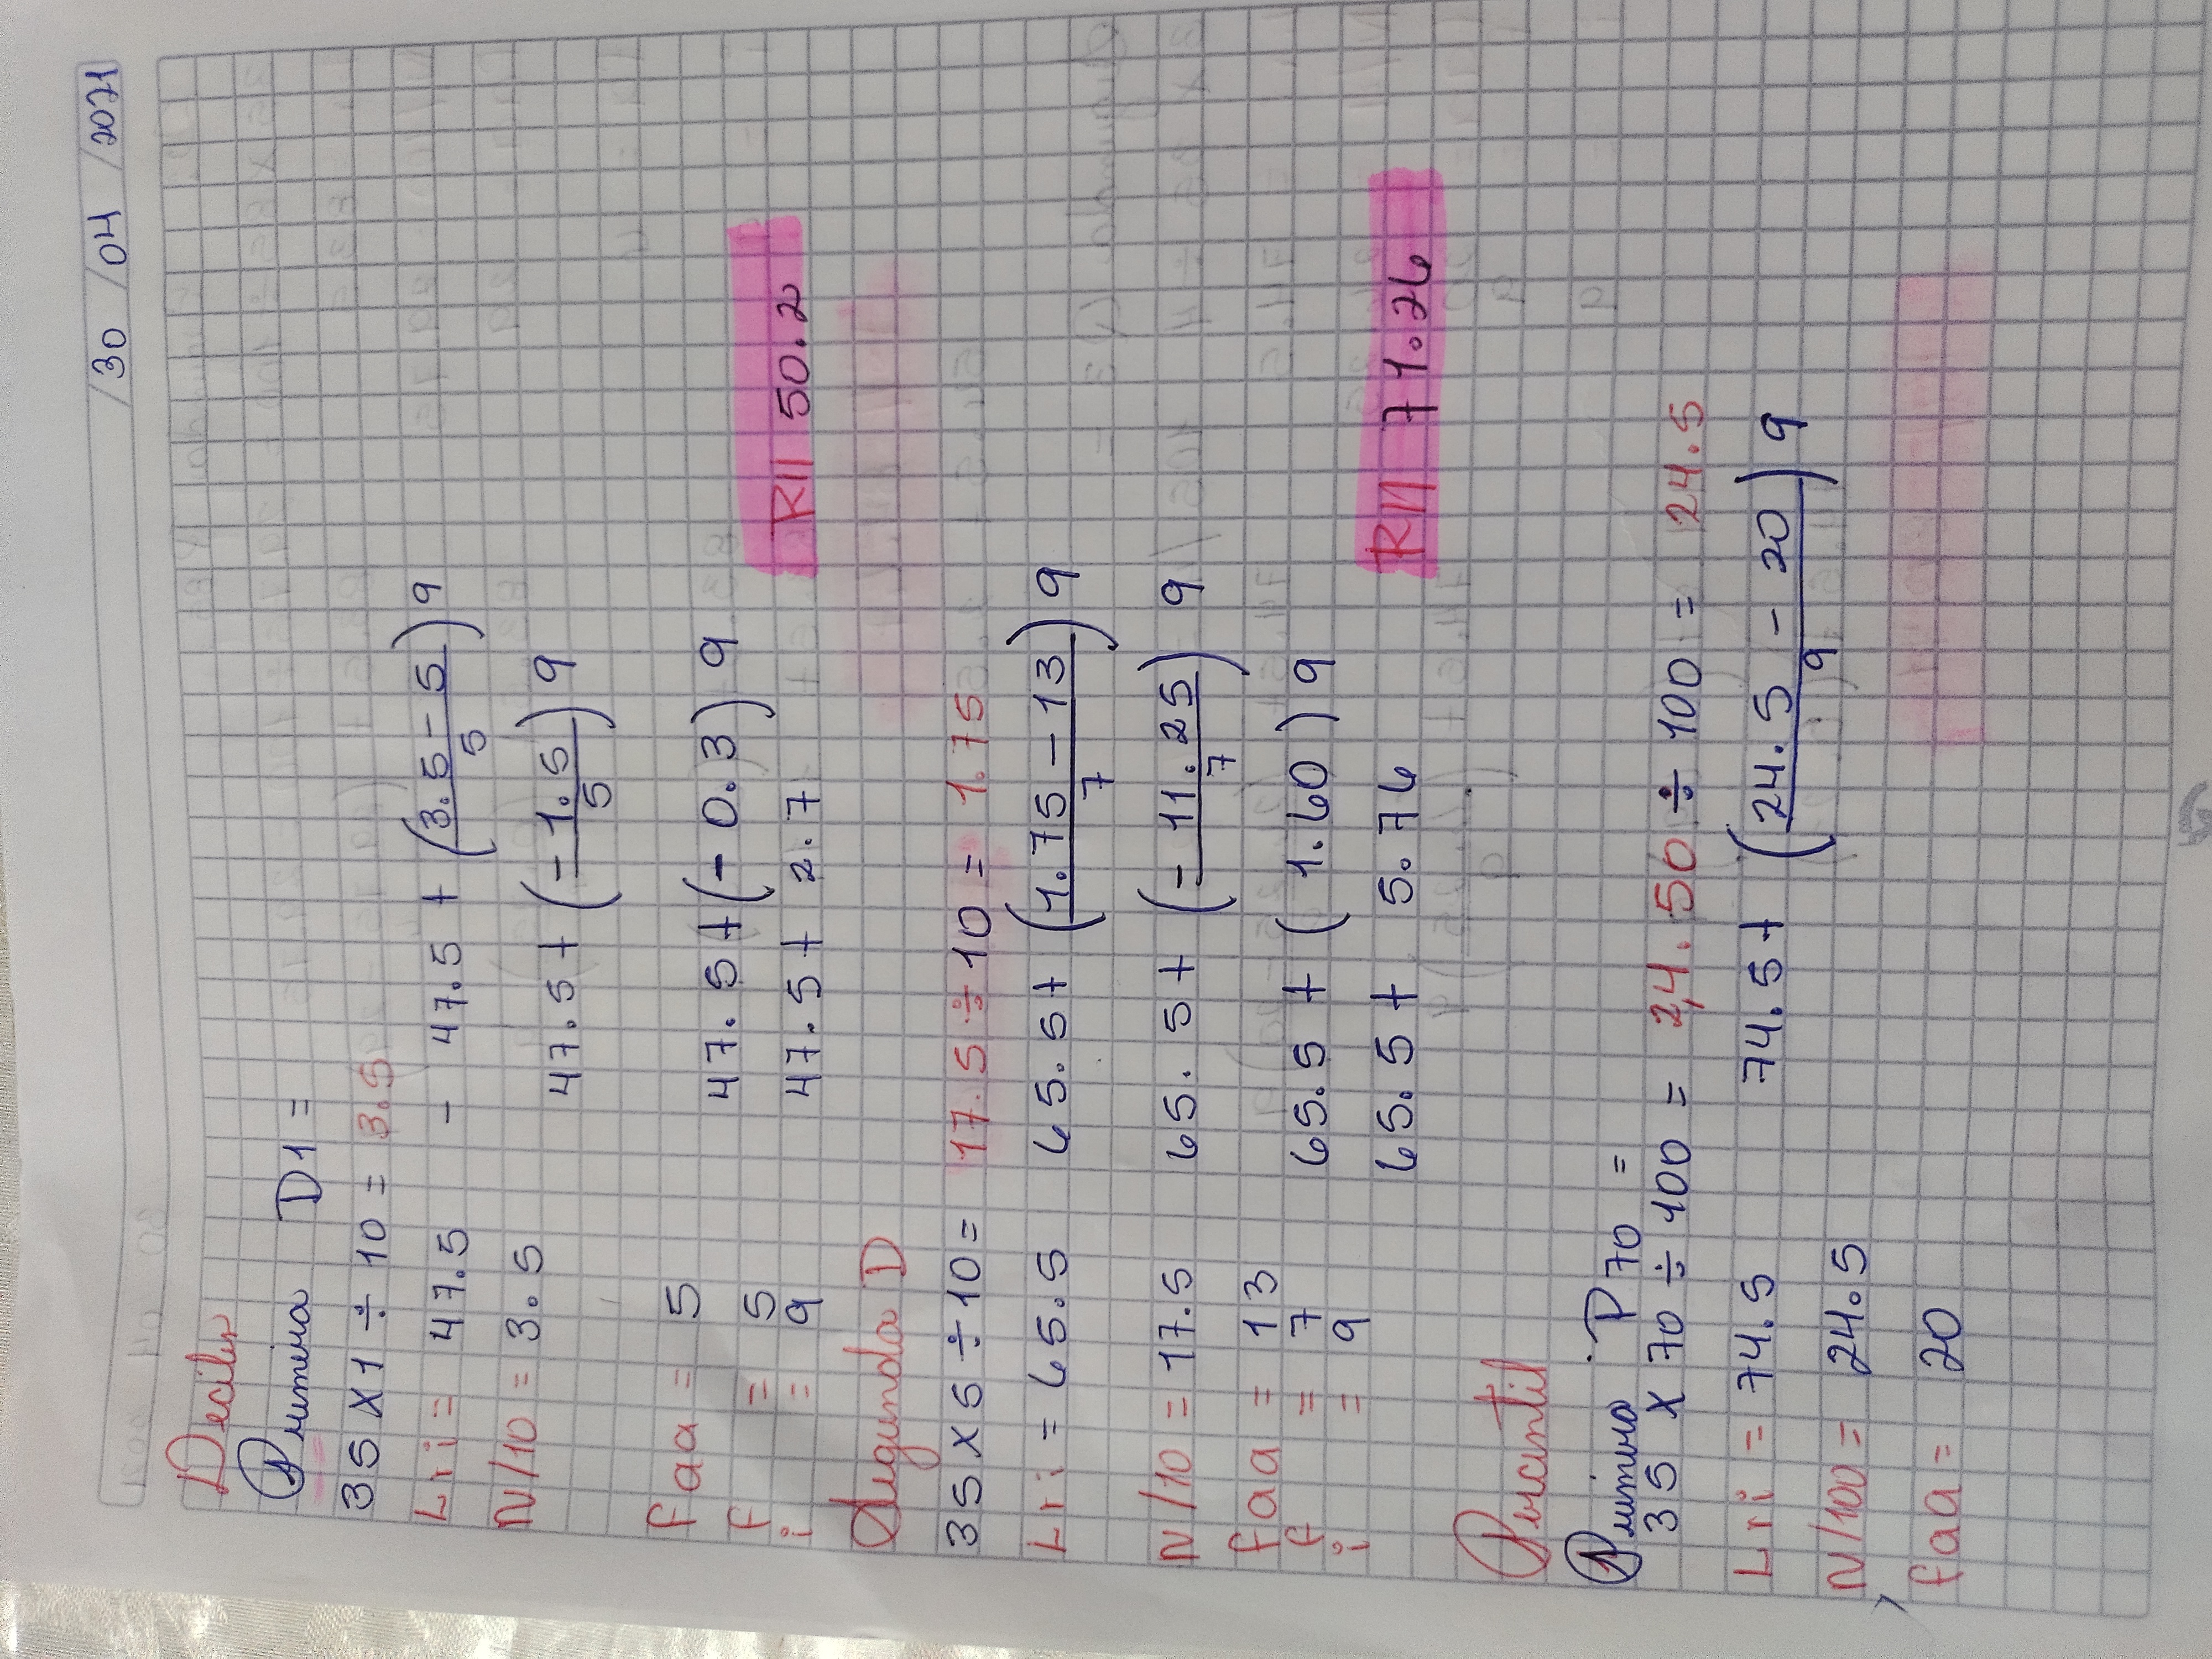 /30 /04 /2021
Deciles
Primera D1 =
35 X 1 ÷ 10 = 3.5
Lri = 47.5 - 47.5 + (3.5 - 5 / 5) 9
N/10 = 3.5
47.5 + (- 1.5 / 5) 9
faa = 5 47.5 + (- 0.3) 9
f = 5 47.5 + 2.7
i = 9 R// 50.2
Segunda D
35 X 5 ÷ 10 = 17.5 ÷ 10 = 1.75
Lri = 65.5 65.5 + (1.75 - 13 / 7) 9
N/10 = 17.5 65.5 + (- 11.25 / 7) 9
faa = 13
f = 7 65.5 + (1.60) 9
i = 9
65.5 + 5.76 R// 71.26
Percentil
Primera P70 =
35 X 70 ÷ 100 = 24.50 ÷ 100 = 24.5
Lri = 74.5 74.5 + (24.5 - 20 / 9) 9
N/100 = 24.5
faa = 20